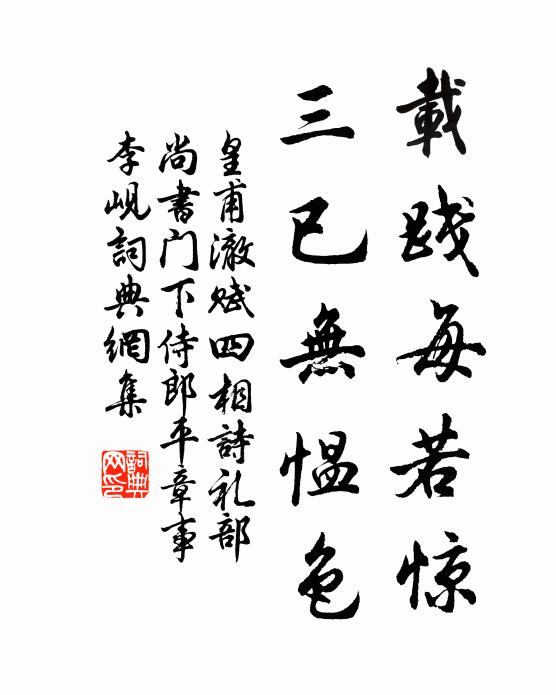 載踐每若惊
三已無愠色
皇甫澈赋四相詩礼部
尚書门下侍郎平章事
李岘詞典網集
詞典网印